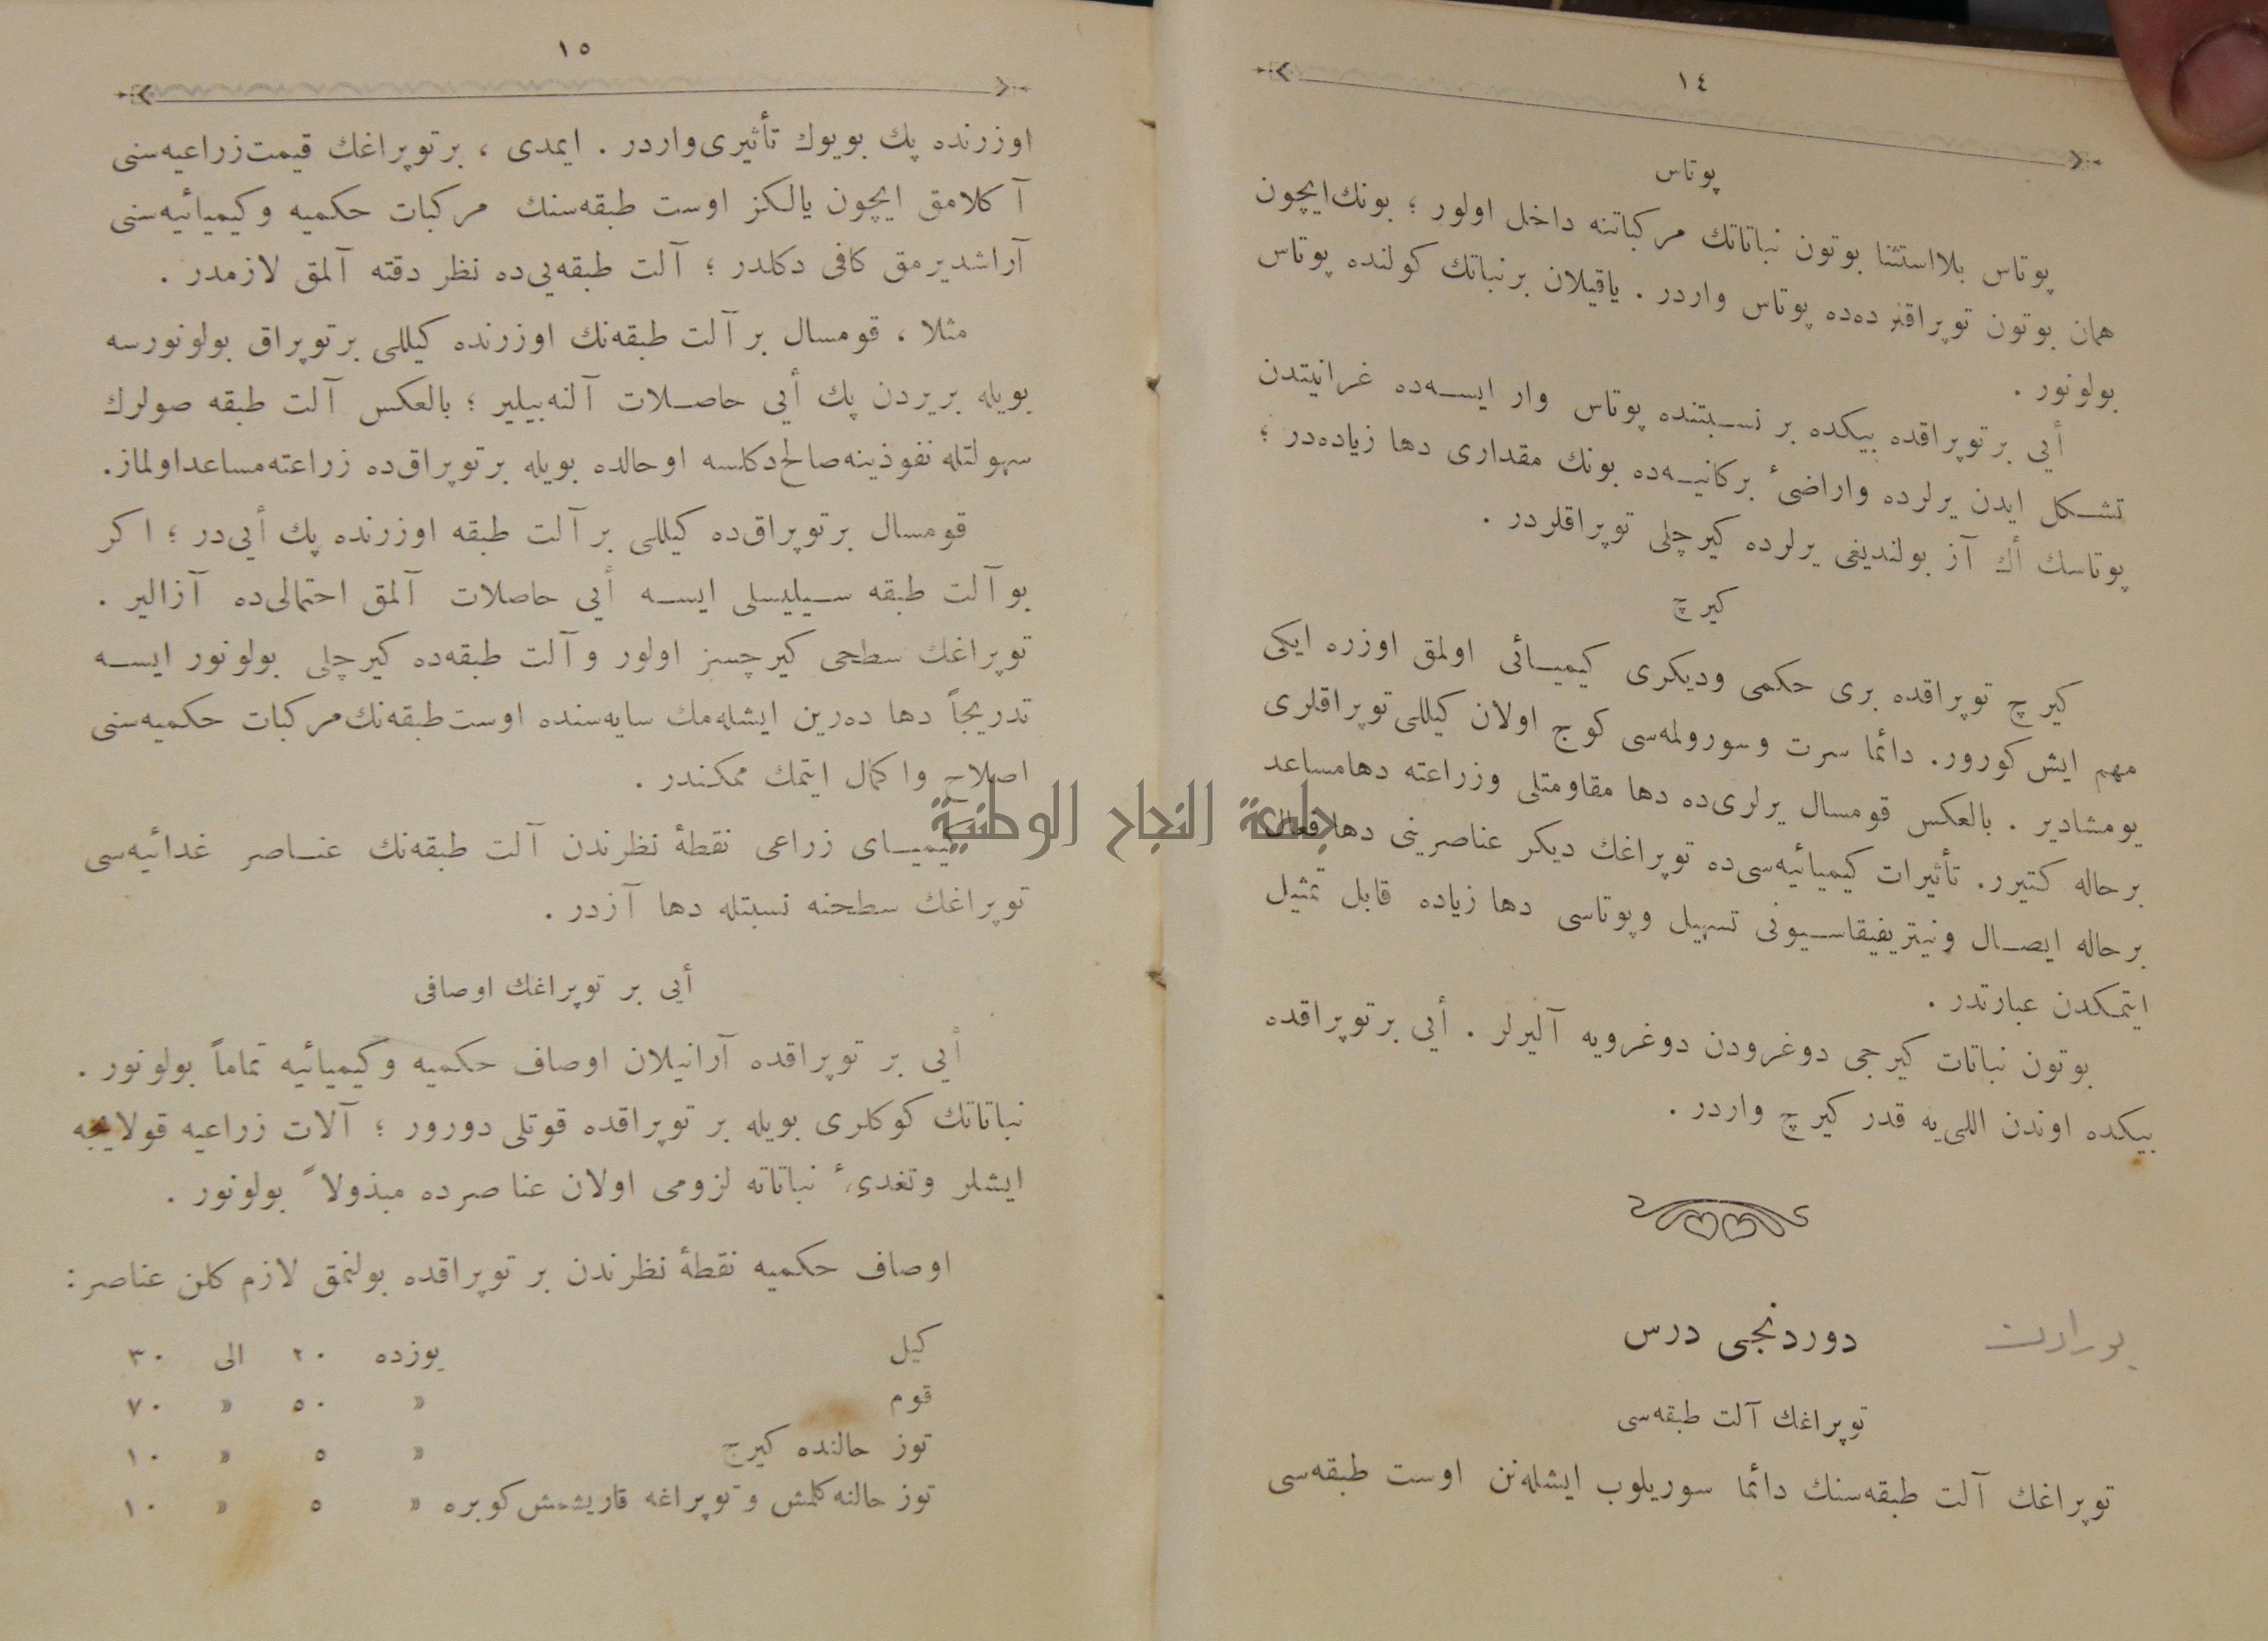 ١٤
پوتاس
پوتاس بلااستثنا بوتون نباتاتك مركباتنه داخل اولور ؛ بونك‌ايچون
همان بوتون توپراقلرده‌ده پوتاس واردر . ياقيلان برنباتك كولنده پوتاس
بولونور .
أيی برتوپراقده بيكده بر نسبتنده پوتاس وار ايسه‌ده غرانيتدن
تشكل ايدن يرلرده واراضئ بركانيه‌ده بونك مقداری دها زياده‌در ؛
پوتاسك أك آز بولنديغی يرلرده كيرچلی توپراقلردر .
كيرچ
كيرچ توپراقده بری حكمی وديكری كيميائی اولمق اوزره ايكی
مهم ايش كورور. دائما سرت وسورولمه‌سی كوج اولان كيللی توپراقلری
يومشادير . بالعكس قومسال يرلری‌ده دها مقاومتلی وزراعته دهامساعد
برحاله كتيرر. تأثيرات كيميائيه‌سی‌ده توپراغك ديكر عناصرينی دها فعال
برحاله ايصال ونيتريفيقاسيونی تسهيل وپوتاسی دها زياده قابل تمثيل
ايتمكدن عبارتدر .
بوتون نباتات كيرجی دوغرودن دوغرويه آليرلر . أيی برتوپراقده
بيكده اوندن اللی‌يه قدر كيرچ واردر .
دوردنجی درس
توپراغك آلت طبقه‌سی
توپراغك آلت طبقه‌سنك دائما سوريلوب ايشله‌نن اوست طبقه‌سی
١٥
اوزرنده پك بويوك تأثيری‌واردر . ايمدی ، برتوپراغك قيمت‌زراعيه‌سنی
آكلامق ايچون يالكز اوست طبقه‌سنك مركبات حكميه وكيميائيه‌سنی
آراشديرمق كافی دكلدر ؛ آلت طبقه‌يی‌ده نظر دقته آلمق لازمدر .
مثلا ، قومسال برآلت طبقه‌نك اوزرنده كيللی برتوپراق بولونورسه
بويله بريردن پك أيی حاصلات آلنه‌بيلير ؛ بالعكس آلت طبقه صولرك
سهولتله نفوذينه‌صالح‌دكلسه اوحالده بويله برتوپراق‌ده زراعته‌مساعداولماز.
قومسال برتوپراق‌ده كيللی برآلت طبقه اوزرنده پك أيی‌در ؛ اكر
بوآلت طبقه سيليسلی ايسه أيی حاصلات آلمق احتمالی‌ده آزالير .
توپراغك سطحی كيرچسز اولور وآلت طبقه‌ده كيرچلی بولونور ايسه
تدريجاً دها ده‌رين ايشله‌مك سايه‌سنده اوست‌طبقه‌نك‌مركبات حكميه‌سنی
اصلاح واكمال ايتمك ممكندر .
جامعة النجاح الوطنية
كيميای زراعی نقطهٔ نظرندن آلت طبقه‌نك عناصر غدائيه‌سی
توپراغك سطحنه نسبتله دها آزدر .
أيی بر توپراغك اوصافی
أيی بر توپراقده آرانيلان اوصاف حكميه وكيميائيه تماماً بولونور .
نباتاتك كوكلری بويله بر توپراقده قوتلی دورور ؛ آلات زراعيه قولايجه
ايشلر وتغدئ نباتاته لزومی اولان عناصرده مبذولاً بولونور .
اوصاف حكميه نقطهٔ نظرندن بر توپراقده بولنمق لازم كلن عناصر :
كيل يوزده ٢٠ الی ٣٠
قوم » ٥٠ » ٧٠
توز حالنده كيرج » ٥ » ١٠
توز حالنه‌كلمش وتوپراغه قاريشمش‌كوبره » ٥ » ١٠